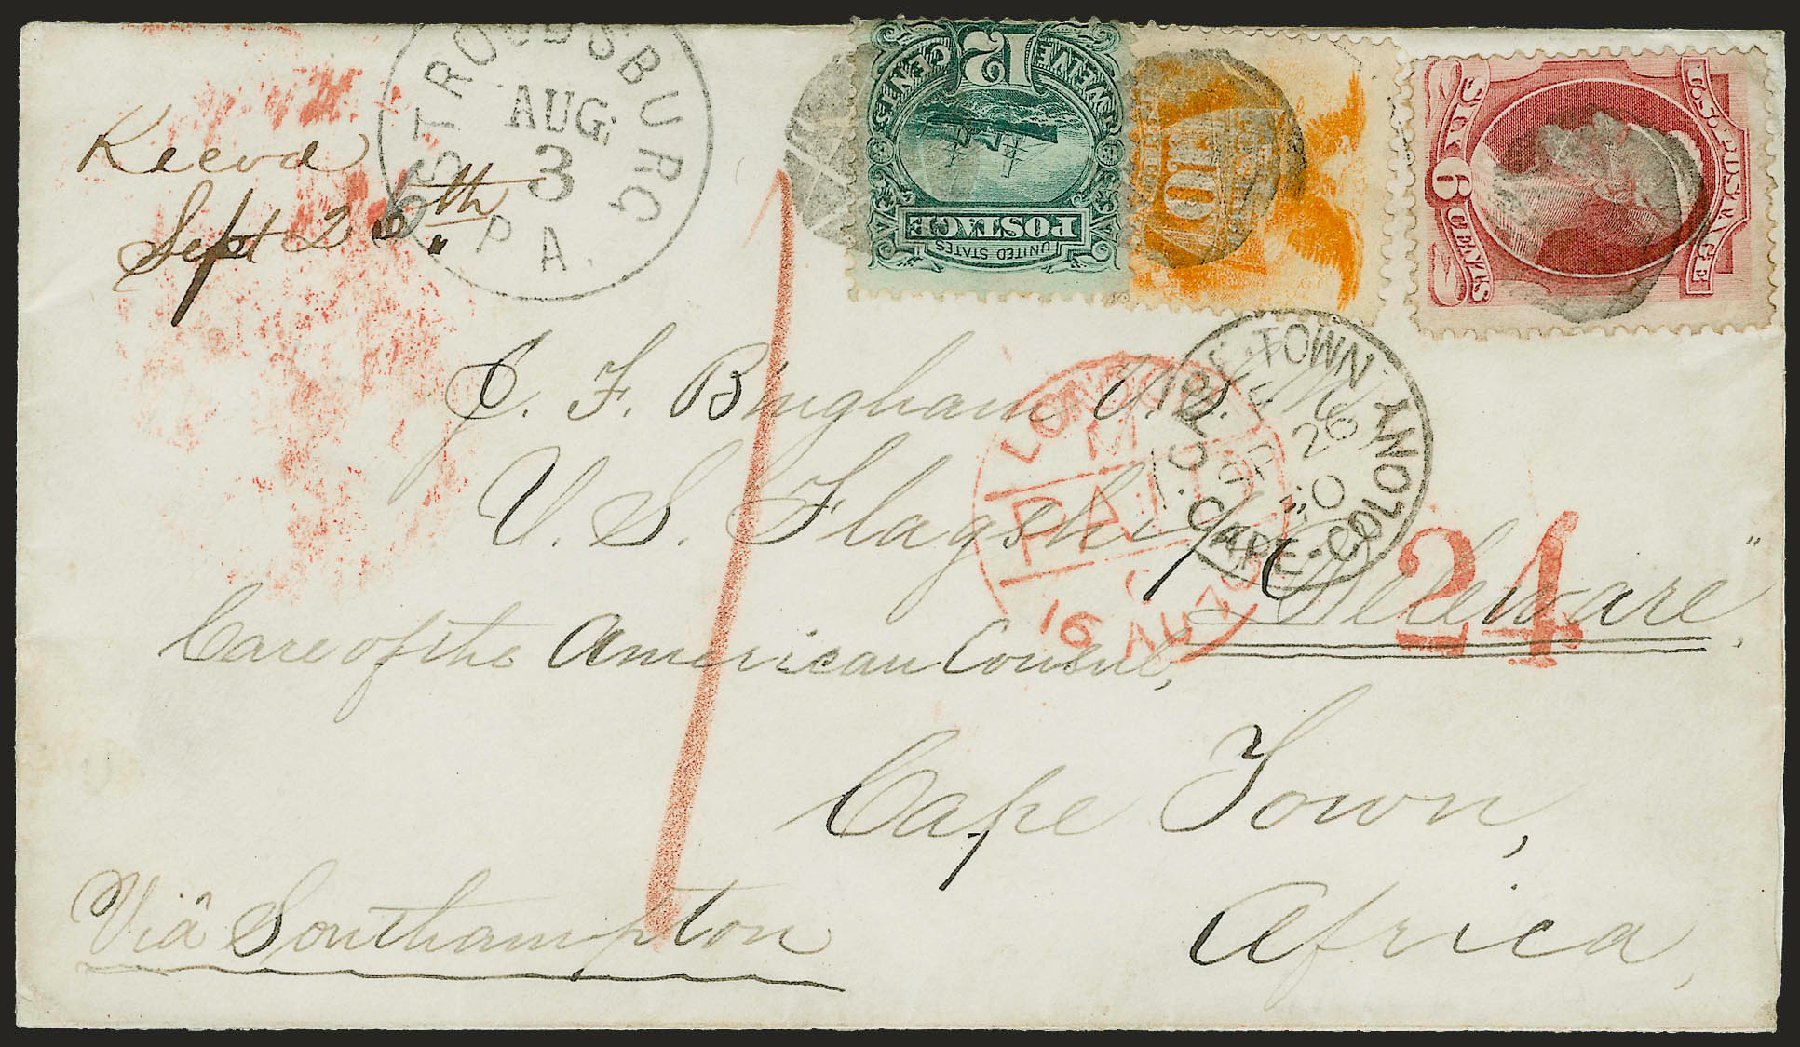 STROUDSBURG
AUG.
3
PA.
Recvd
Sept 25th
12
TWELVE CENTS
UNITED STATES
POSTAGE
10
U.S. POSTAGE
SIX 6 CENTS
J. F. Bingham U.S.
U. S. Flagship "Deleware"
Care of the American Consul,
Cape Town,
Africa,
Via Southampton
LONDON
M
PAID
16 AU 70
CAPE-TOWN
SP 26
70
CAPE-COLONY
24
1